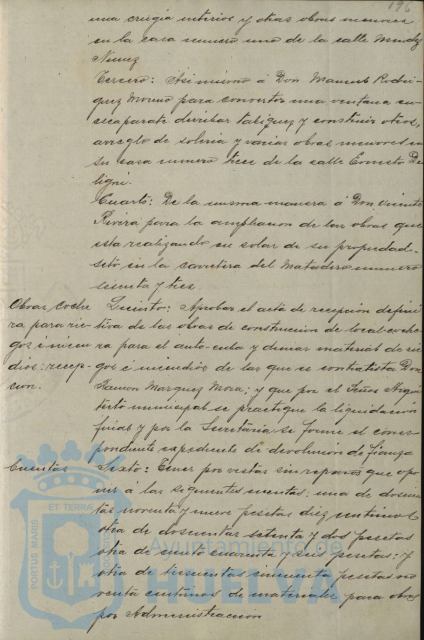 196
una crugía interior y otras obras menores
en la casa numero uno de la calle Mendez
Nuñez
Tercero: Asimismo á Don Manuel Rodri-
guez Moreno para convertir una ventana en
escaparate derribar tabiques y construir otros,
arreglo de soleria y varias obras menores en
su casa numero trece de la calle Ernesto De
ligni.
Cuarto: De la misma manera á Don Vicente
Rivera para la ampliacion de las obras que
está realizando en solar de su propiedad
sito en la carretera del Matadero numero
sesenta y tres
Obras coche
ra para rie-
gos é incen-
dios: recep-
cion.
Quinto: Aprobar el acta de recepción defini
tiva de las obras de construccion de local coche
ra para el auto-cuba y demas material de rie
gos é incendios de las que es contratista Don
Ramon Marquez Mora; y que por el Señor Arqui
tecto municipal se practique la liquidacion
final y por la Secretaria se forme el corres-
pondiente expediente de devolucion de fianza
Cuentas
Sexto: Tener por vistas sin reparos que opo
ner á las siguientes cuentas: una de doscien
tas noventa y nueve pesetas diez centimos
otra de doscientas setenta y dos pesetas
otra de cuarenta y pesetas: y
otra de trescientas cincuenta pesetas no
venta centimos de materiales para obras
por Administracion
PORTUS MARIS ET TERRAE
Ayuntamiento de
HUELVA